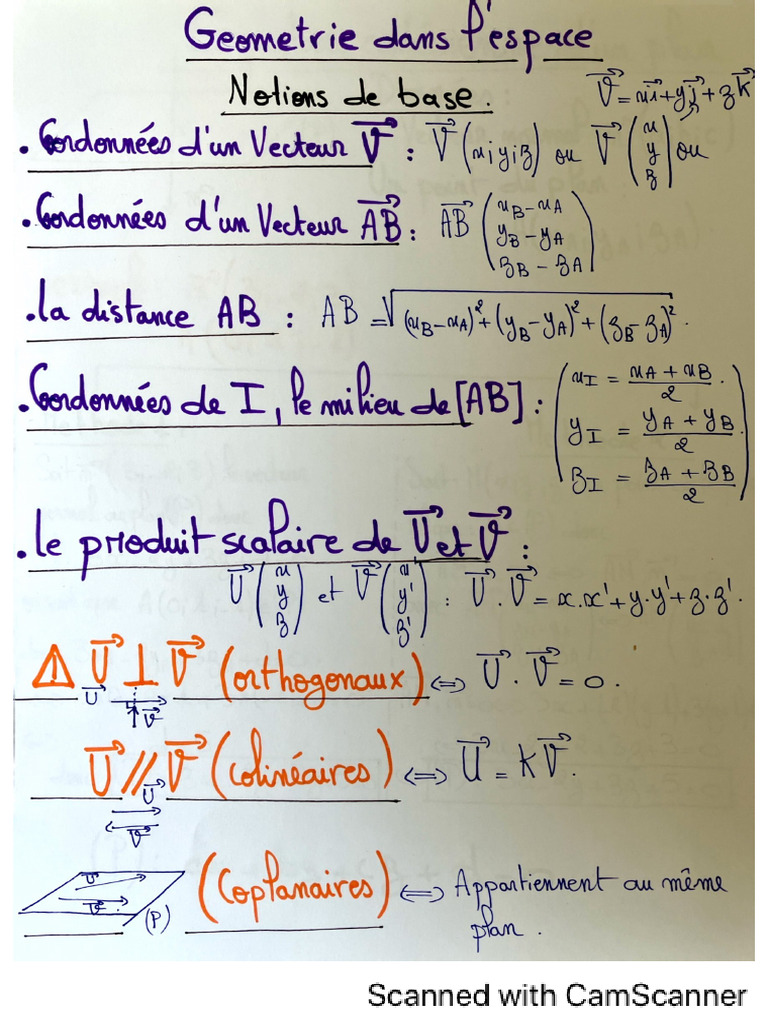 Geometrie dans l'espace
Notions de base.
V⃗ = xi⃗ + yj⃗ + zk⃗
• Coordonnées d'un Vecteur V⃗ : V⃗ (x;y;z) ou V⃗ (x y z) ou
• Coordonnées d'un Vecteur AB⃗ : AB⃗ (x_B - x_A
y_B - y_A
z_B - z_A)
• la distance AB : AB = √((x_B - x_A)² + (y_B - y_A)² + (z_B - z_A)²).
• Coordonnées de I, le milieu de [AB] : (x_I = (x_A + x_B)/2.
y_I = (y_A + y_B)/2.
z_I = (z_A + z_B)/2)
• le produit scalaire de U⃗ et V⃗ :
U⃗ (x y z) et V⃗ (x' y' z') : U⃗ . V⃗ = x.x' + y.y' + z.z'.
⚠ U⃗ ⊥ V⃗ (orthogonaux) ⇔ U⃗ . V⃗ = 0.
U⃗ V⃗
U⃗ // V⃗ (colinéaires) ⇔ U⃗ = kV⃗.
U⃗
V⃗
U⃗
V⃗ (P)
(Coplanaires) ⇔ Appartiennent au même
plan.
Scanned with CamScanner